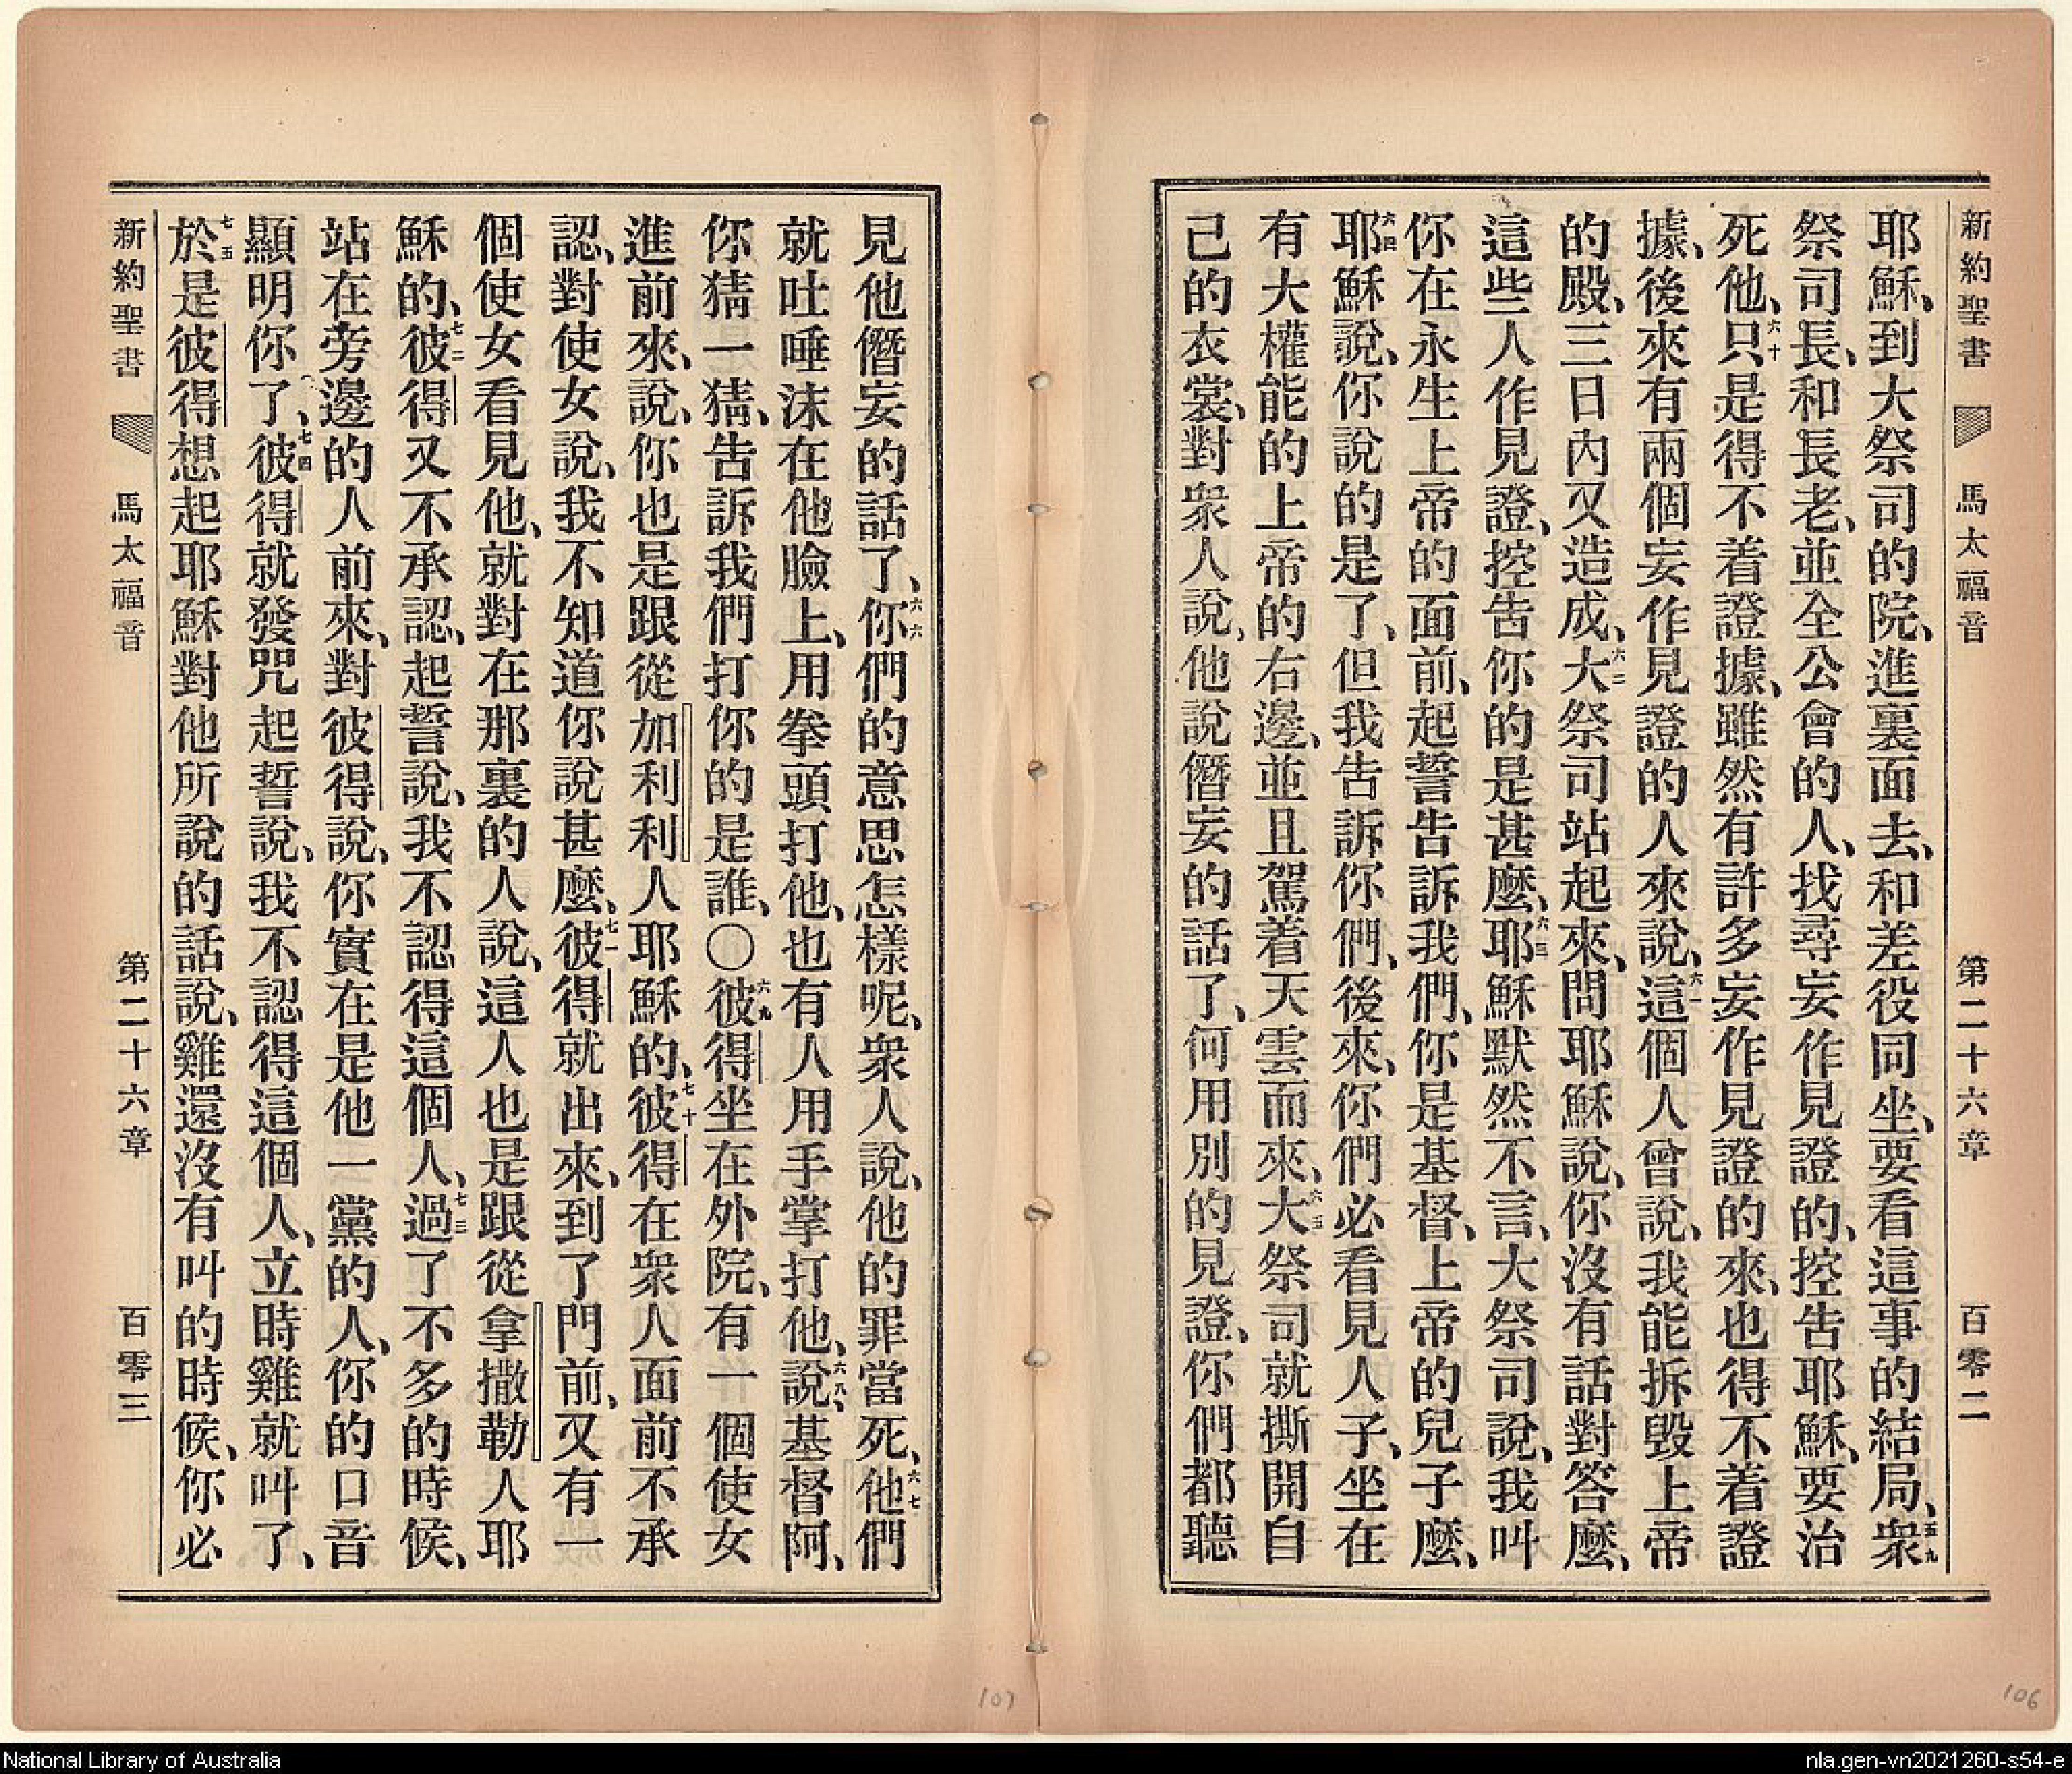 新約聖書 馬太福音 第二十六章 百零二
耶穌、到大祭司的院、進裏面去、和差役同坐、要看這事的結局、五九衆
祭司長、和長老、並全公會的人、找尋妄作見證的、控告耶穌、要治
死他、六十只是得不着證據、雖然有許多妄作見證的來、也得不着證
據、後來有兩個妄作見證的人來說、六一這個人曾說、我能拆毀上帝
的殿、三日內又造成、六二大祭司站起來、問耶穌說、你沒有話對答麼、
這些人作見證、控告你的是甚麼、六三耶穌默然不言、大祭司說、我叫
你在永生上帝的面前、起誓告訴我們、你是基督、上帝的兒子麼、
六四耶穌說、你說的是了、但我告訴你們、後來、你們必看見人子、坐在
有大權能的上帝的右邊、並且駕着天雲而來、六五大祭司就撕開自
己的衣裳、對衆人說、他說僭妄的話了、何用別的見證、你們都聽
見他僭妄的話了、六六你們的意思怎樣呢、衆人說、他的罪當死、六七他們
就吐唾沫在他臉上、用拳頭打他、也有人用手掌打他、六八說、基督阿、
你猜一猜、告訴我們打你的是誰、〇六九彼得坐在外院、有一個使女
進前來、說、你也是跟從加利利人耶穌的、七十彼得在衆人面前不承
認、對使女說、我不知道你說甚麼、七一彼得就出來、到了門前、又有一
個使女看見他、就對在那裏的人說、這人也是跟從拿撒勒人耶
穌的、七二彼得又不承認、起誓說、我不認得這個人、七三過了不多的時候、
站在旁邊的人前來、對彼得說、你實在是他一黨的人、你的口音
顯明你了、七四彼得就發咒起誓說、我不認得這個人、立時雞就叫了、
七五於是彼得想起耶穌對他所說的話說、雞還沒有叫的時候、你必
新約聖書 馬太福音 第二十六章 百零三
107
106
National Library of Australia
nla.gen-vn2021260-s54-e